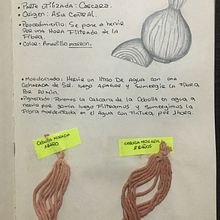 • Parte utilizada: Cascara.
• Origen: Asia Central.
• Procedimiento: Se pone a hervir
Por una Hora Filtrado de la
Fibra.
• Color: Amarillo marron.
• Mordentado: Hervir un litro De agua con una
Cucharada de Sal luego Apagar y Sumergir la Fibra
Por
• Pigmentado: Ponemos la Cascara de la Cebolla en agua a
hervir por luego Filtramos y Sumergimos la
Fibra mordentada en el Agua con tintura por 1 hora.
CEBOLLA MORADA
CEBOLLA MORADA